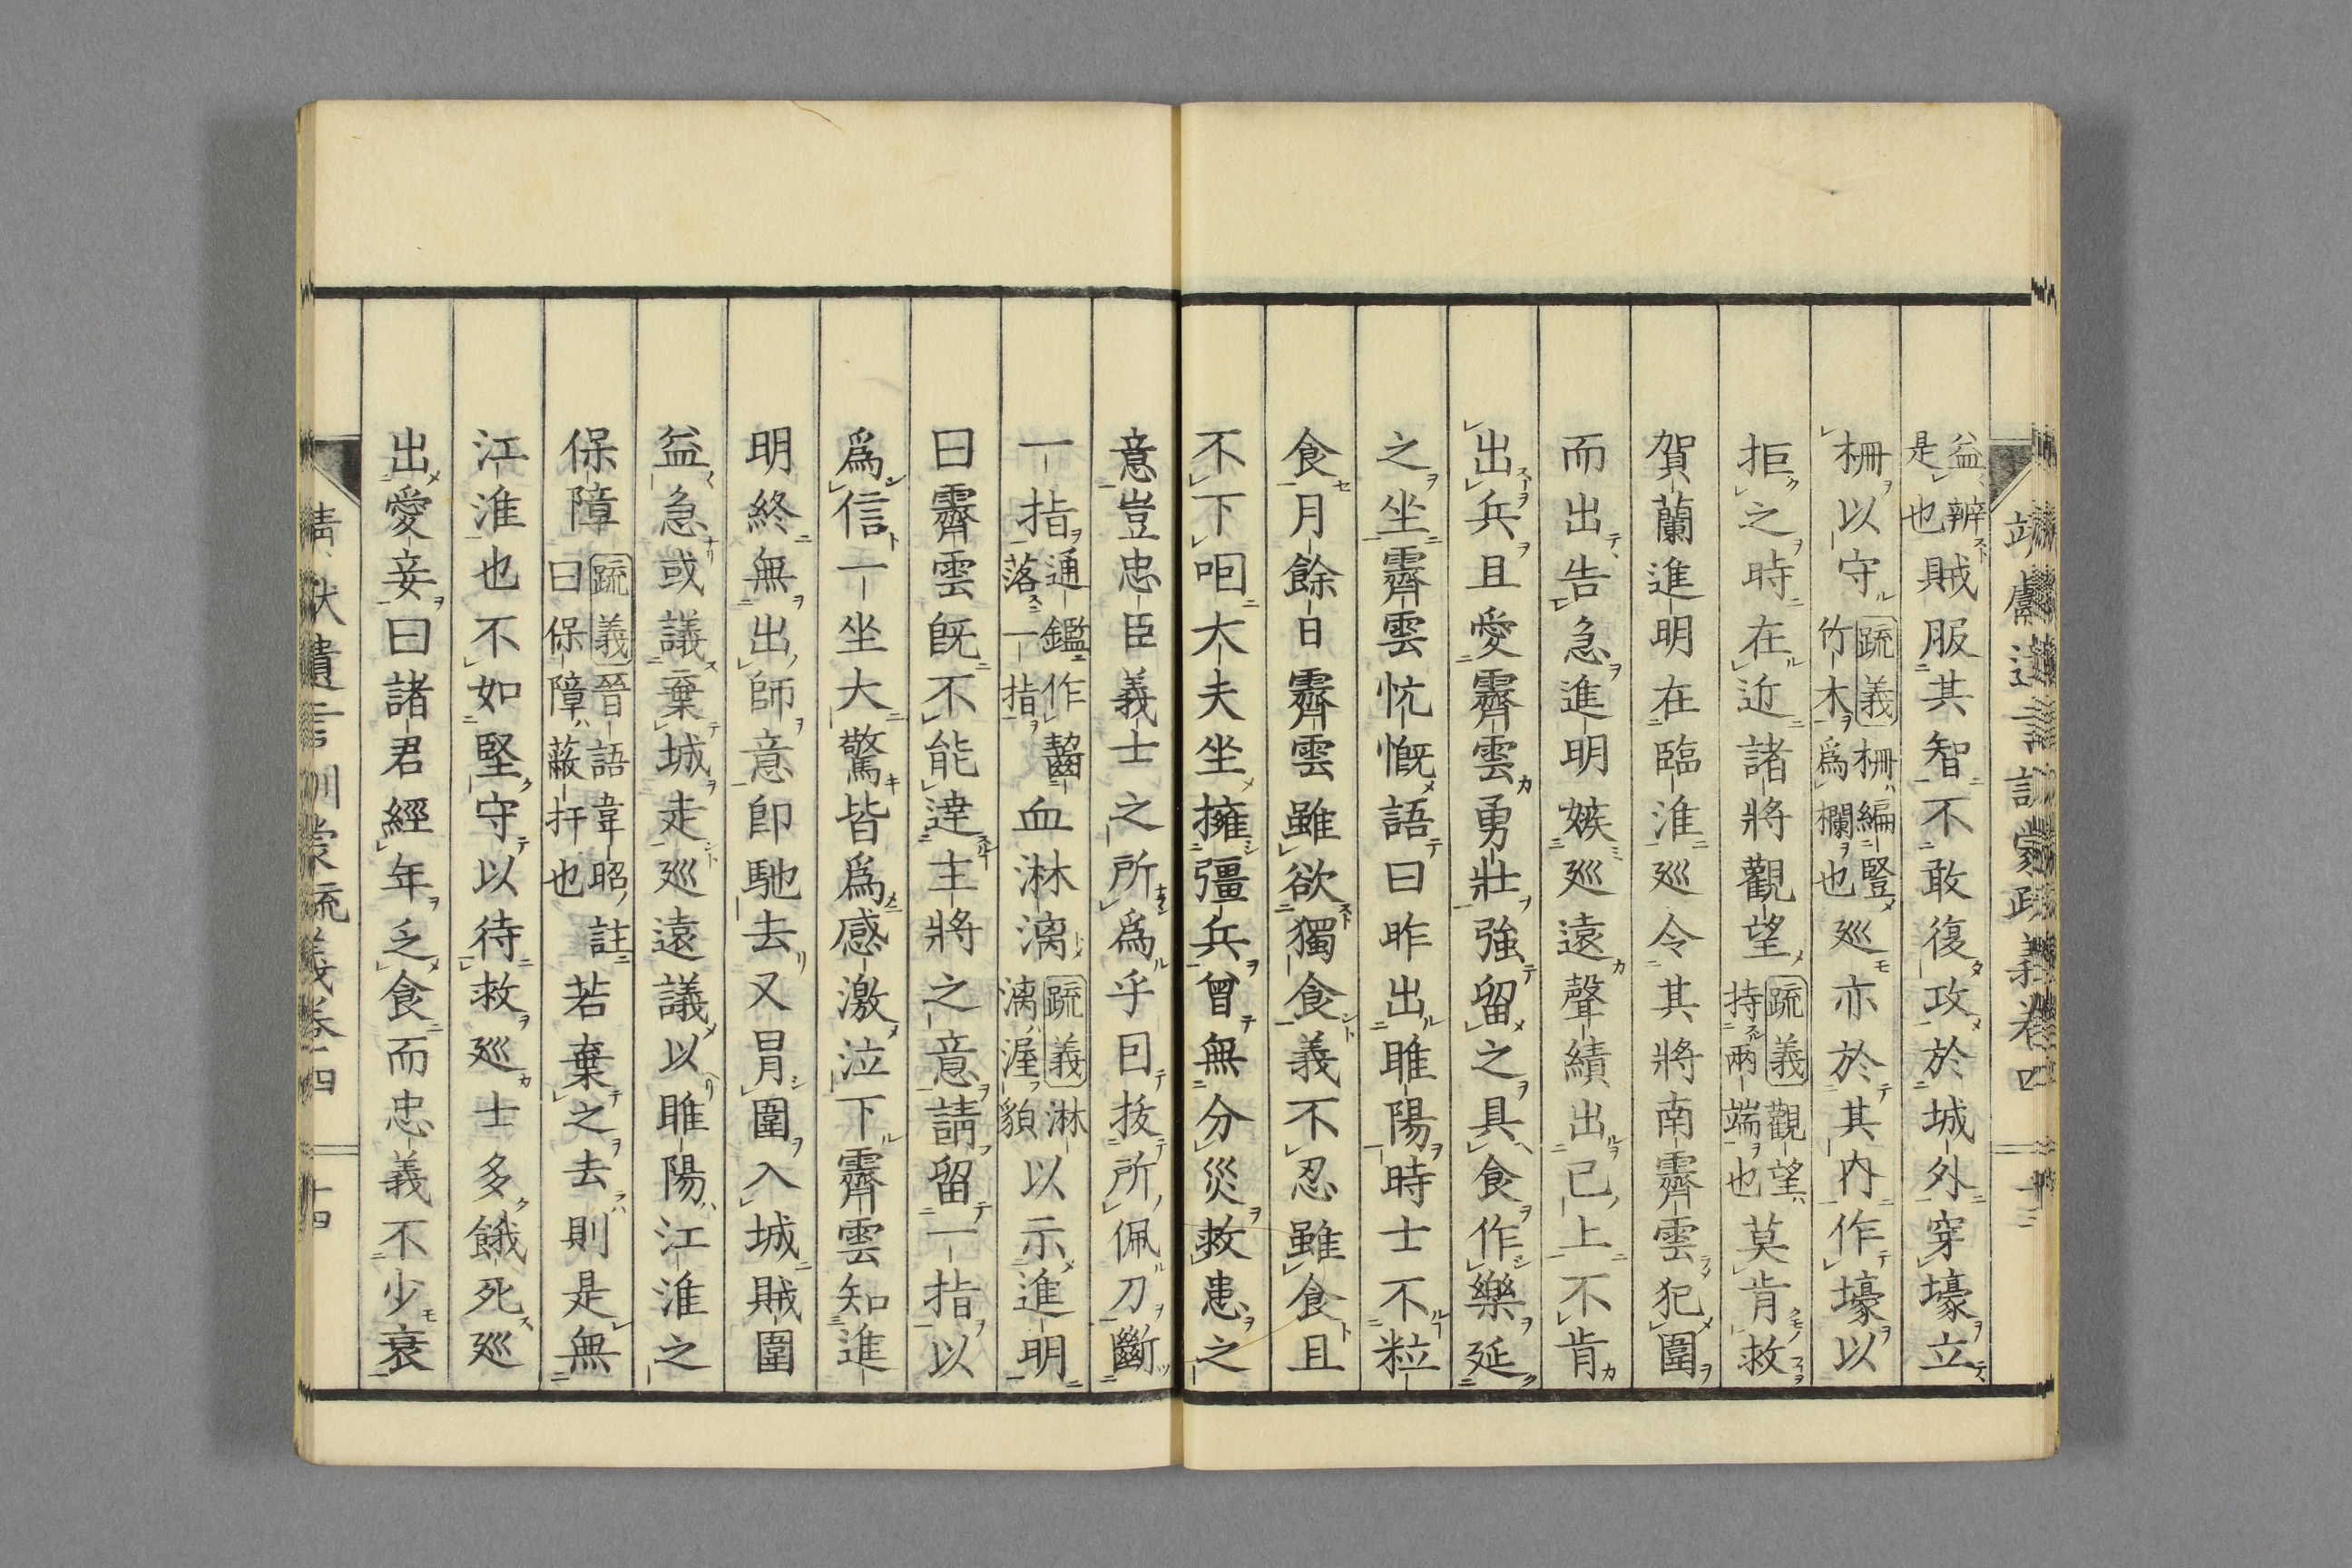 益辨
是也賊服其智不敢復攻於城外穿壕立
柵以守疏義柵編豎
竹木爲欄也巡亦於其内作壕以
拒之時在近諸將觀望疏義觀望
持兩端也莫肯救
賀蘭進明在臨淮巡令其將南霽雲犯圍
而出告急進明嫉巡遠聲績出已上不肯
出兵且愛霽雲勇壯強留之具食作樂延
之坐霽雲忼慨語曰昨出睢陽時士不粒
食月餘日霽雲雖欲獨食義不忍雖食且
不下咽大夫坐擁彊兵曾無分災救患之
意豈忠臣義士之所爲乎因拔所佩刀斷
一指通鑑作齧
落一指血淋漓疏義淋
漓渥貌以示進明
曰霽雲既不能達主將之意請留一指以
爲信一坐大驚皆爲感激泣下霽雲知進
明終無出師意卽馳去又冒圍入城賊圍
益急或議棄城走巡遠議以睢陽江淮之
保障疏義晉語韋昭註
曰保障蔽扞也若棄之去則是無
江淮也不如堅守以待救巡士多餓死巡
出愛妾曰諸君經年乏食而忠義不少衰
靖獻遺言訓蒙疏義卷四 十四